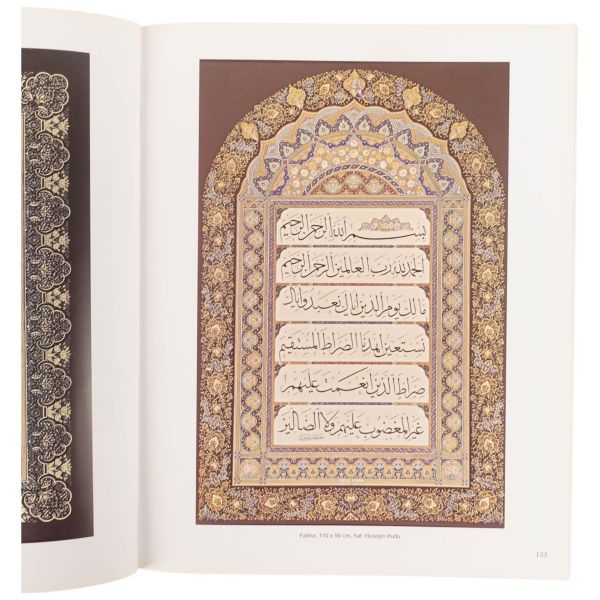 بسم الله الرحمن الرحيم
الحمد لله رب العالمين الرحمن الرحيم
مالك يوم الدين اياك نعبد واياك
نستعين اهدنا الصراط المستقيم
صراط الذين انعمت عليهم
غير المغضوب عليهم ولا الضالين
Fatiha, 110 x 90 cm, hat: Hüseyin Kutlu
133